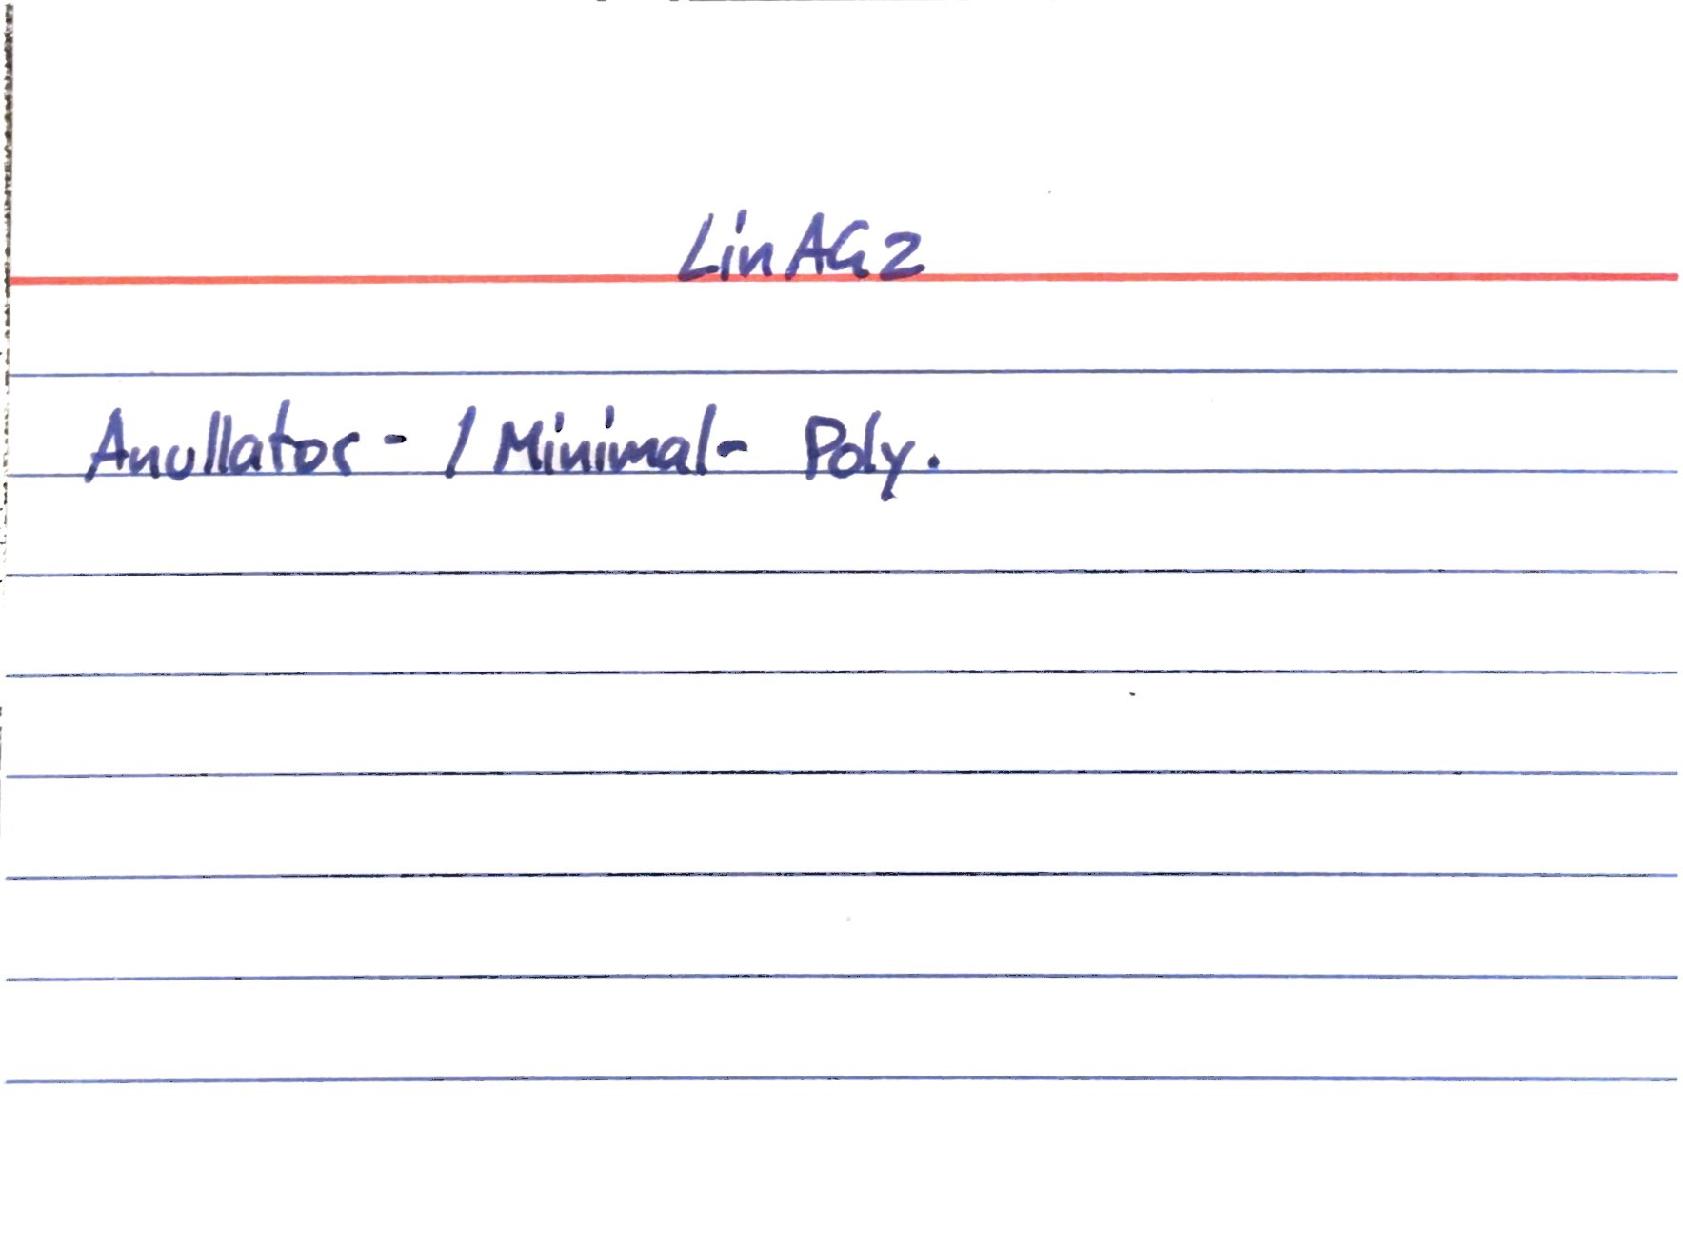 LinAG2
Anullator- / Minimal- Poly.